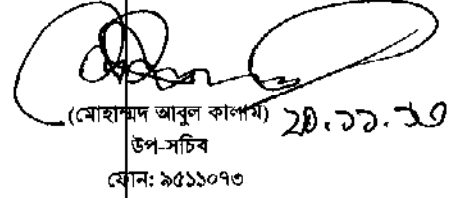 (মোহাম্মদ আবুল কালাম) ২০.১১.১০
উপ-সচিব
ফোন: ৯৫১১০৭৩